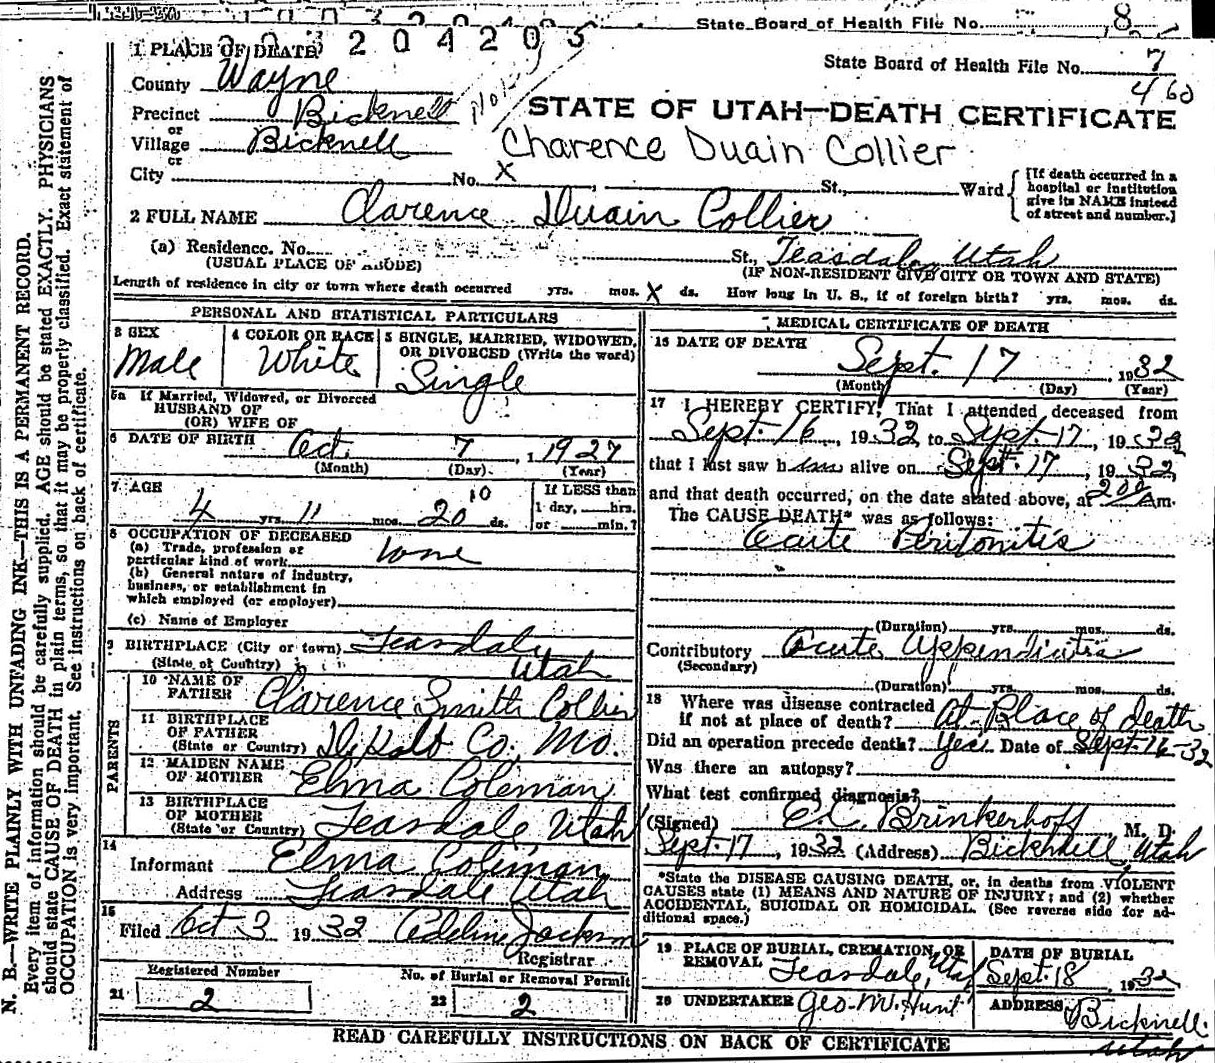 State Board of Health File No. 8
1003204205
1 PLACE OF DEATH
State Board of Health File No. 7
460
County Wayne
Precinct Bicknell
or
Village Bicknell
or
City No. X St., Ward
STATE OF UTAH—DEATH CERTIFICATE
Charence Duain Collier
[If death occurred in a hospital or institution give its NAME instead of street and number.]
2 FULL NAME Clarence Duain Collier
(a) Residence. No. St., Teasdale, Utah
(USUAL PLACE OF ABODE) (IF NON-RESIDENT GIVE CITY OR TOWN AND STATE)
Length of residence in city or town where death occurred yrs. mos. X ds. How long in U. S., if of foreign birth? yrs. mos. ds.
PERSONAL AND STATISTICAL PARTICULARS
3 SEX
Male
4 COLOR OR RACE
White
5 SINGLE, MARRIED, WIDOWED,
OR DIVORCED (Write the word)
Single
5a If Married, Widowed, or Divorced
HUSBAND OF
(OR) WIFE OF
6 DATE OF BIRTH Oct. 7, 1927
(Month) (Day) (Year)
7 AGE
4 yrs. 11 mos. 20 10 ds.
If LESS than
1 day, hrs.
or min.?
8 OCCUPATION OF DECEASED
(a) Trade, profession or
particular kind of work none
(b) General nature of industry,
business, or establishment in
which employed (or employer)
(c) Name of Employer
9 BIRTHPLACE (City or town) Teasdale
(State or Country) Utah
PARENTS
10 NAME OF
FATHER Clarence Smith Collier
11 BIRTHPLACE
OF FATHER
(State or Country) DeKalb Co. Mo.
12 MAIDEN NAME
OF MOTHER Elma Coleman
13 BIRTHPLACE
OF MOTHER
(State or Country) Teasdale, Utah
14
Informant Elma Coleman
Address Teasdale Utah
15
Filed Oct 3 1932 Adeline Jackson
Registrar
Registered Number
21 2
No. of Burial or Removal Permit
22 2
MEDICAL CERTIFICATE OF DEATH
16 DATE OF DEATH
Sept. 17, 1932
(Month) (Day) (Year)
17 I HEREBY CERTIFY, That I attended deceased from
Sept. 16, 1932 to Sept. 17, 1932
that I last saw him alive on Sept. 17, 1932,
and that death occurred, on the date stated above, at 200 Am.
The CAUSE DEATH* was as follows:
Acute Peritonitis
(Duration) yrs. mos. ds.
Contributory Acute Appendicitis
(Secondary)
(Duration) yrs. mos. ds.
18 Where was disease contracted
if not at place of death? At Place of death
Did an operation precede death? Yes. Date of Sept. 16-32
Was there an autopsy?
What test confirmed diagnosis?
(Signed) E.C. Brinkerhoff, M. D.
Sept. 17, 1932 (Address) Bicknell, Utah
*State the DISEASE CAUSING DEATH, or, in deaths from VIOLENT
CAUSES state (1) MEANS AND NATURE OF INJURY; and (2) whether
ACCIDENTAL, SUICIDAL OR HOMICIDAL. (See reverse side for ad-
ditional space.)
19 PLACE OF BURIAL, CREMATION, OR
REMOVAL Teasdale, Utah
DATE OF BURIAL
Sept. 18 1932
20 UNDERTAKER Geo. M. Hunt
ADDRESS Bicknell.
Utah
READ CAREFULLY INSTRUCTIONS ON BACK OF CERTIFICATE
N. B.—WRITE PLAINLY WITH UNFADING INK—THIS IS A PERMANENT RECORD.
Every item of information should be carefully supplied. AGE should be stated EXACTLY. PHYSICIANS
should state CAUSE OF DEATH in plain terms, so that it may be properly classified. Exact statement of
OCCUPATION is very important. See instructions on back of certificate.